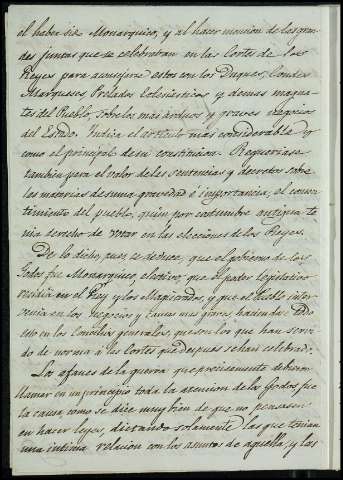 el haber sido Monarquico, y al hacer mencion de las gran-
des juntas que se celebraban en las Cortes de los
Reyes para aconsejarse estos con los Duques, Condes
Marqueses, Prelados Eclesiasticos y demas magna-
tes del Pueblo, sobre los mas arduos y graves negocios
del Estado. Indica el articulo mas considerable y
como el principal de su constitucion. Requeriase
tambien para el valor de las sentencias y decretos sobre
las materias de suma gravedad é importancia, el conse-
timiento del pueblo, quien por costumbre antigua te-
nia derecho de votar en las elecciones de los Reyes.
De lo dicho pues se deduce, que el gobierno de los
Godos fue Monarquico, electivo, que el poder legislativo
residia en el Rey y los Magistrados, y que el Pueblo inter-
venia en los negocios y causas mas graves, haciendo todo
esto en los Concilios generales, que son los que han servi-
do de norma á las Cortes que despues se han celebrado.
Los afanes de la guerra que precisamente debieron
llamar en un principio toda la atencion de los Godos fue
la causa, como se dice muy bien de que no pensasen
en hacer leyes, dictando solamente las que tenian
una intima relacion con los asuntos de aquella, y las